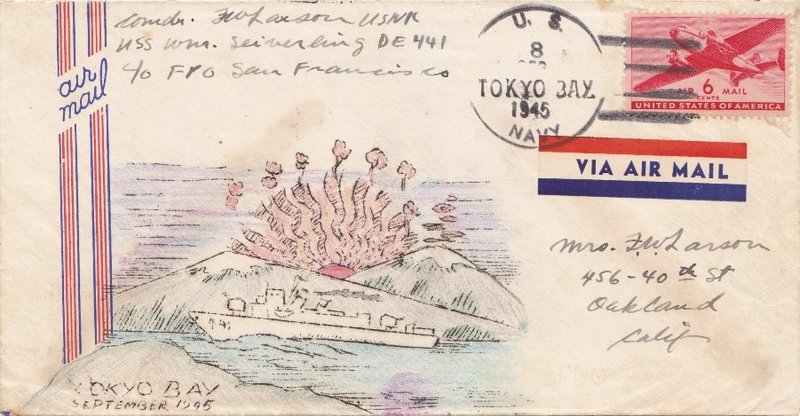 Comdr. F W Larson USNR
USS Wm. Seiverling DE 441
c/o FPO San Francisco
air
mail
U. S.
8
SEP
TOKYO BAY
1945
NAVY
AIR 6 MAIL
CENTS
UNITED STATES OF AMERICA
VIA AIR MAIL
Mrs. F.W. Larson
456-40th St
Oakland
Calif
TOKYO BAY
SEPTEMBER 1945